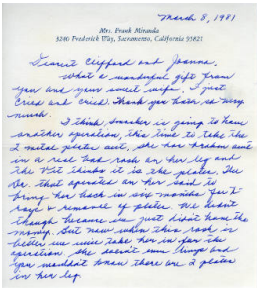 March 8, 1981
Mrs. Frank Miranda
3240 Frederick Way, Sacramento, California 95821
Dearest Clifford and Joanna.
What a wonderful gift from
you and your sweet wife. I just
cried and cried. Thank you both so very
much.
I think Smaker is going to have
another operation, this time to take the
2 metal plates out, she has broken out
in a real bad rash on her leg and
the Vet thinks it is the plates. The
Dr. that operated on her said to
bring her back in six months for X-
rays & removal of plates. We didn't
though because we just didn't have the
money. But now when this rash is
better we will take her in for the
operation she doesn't even limp and
you wouldn't know there are 2 plates
in her leg.